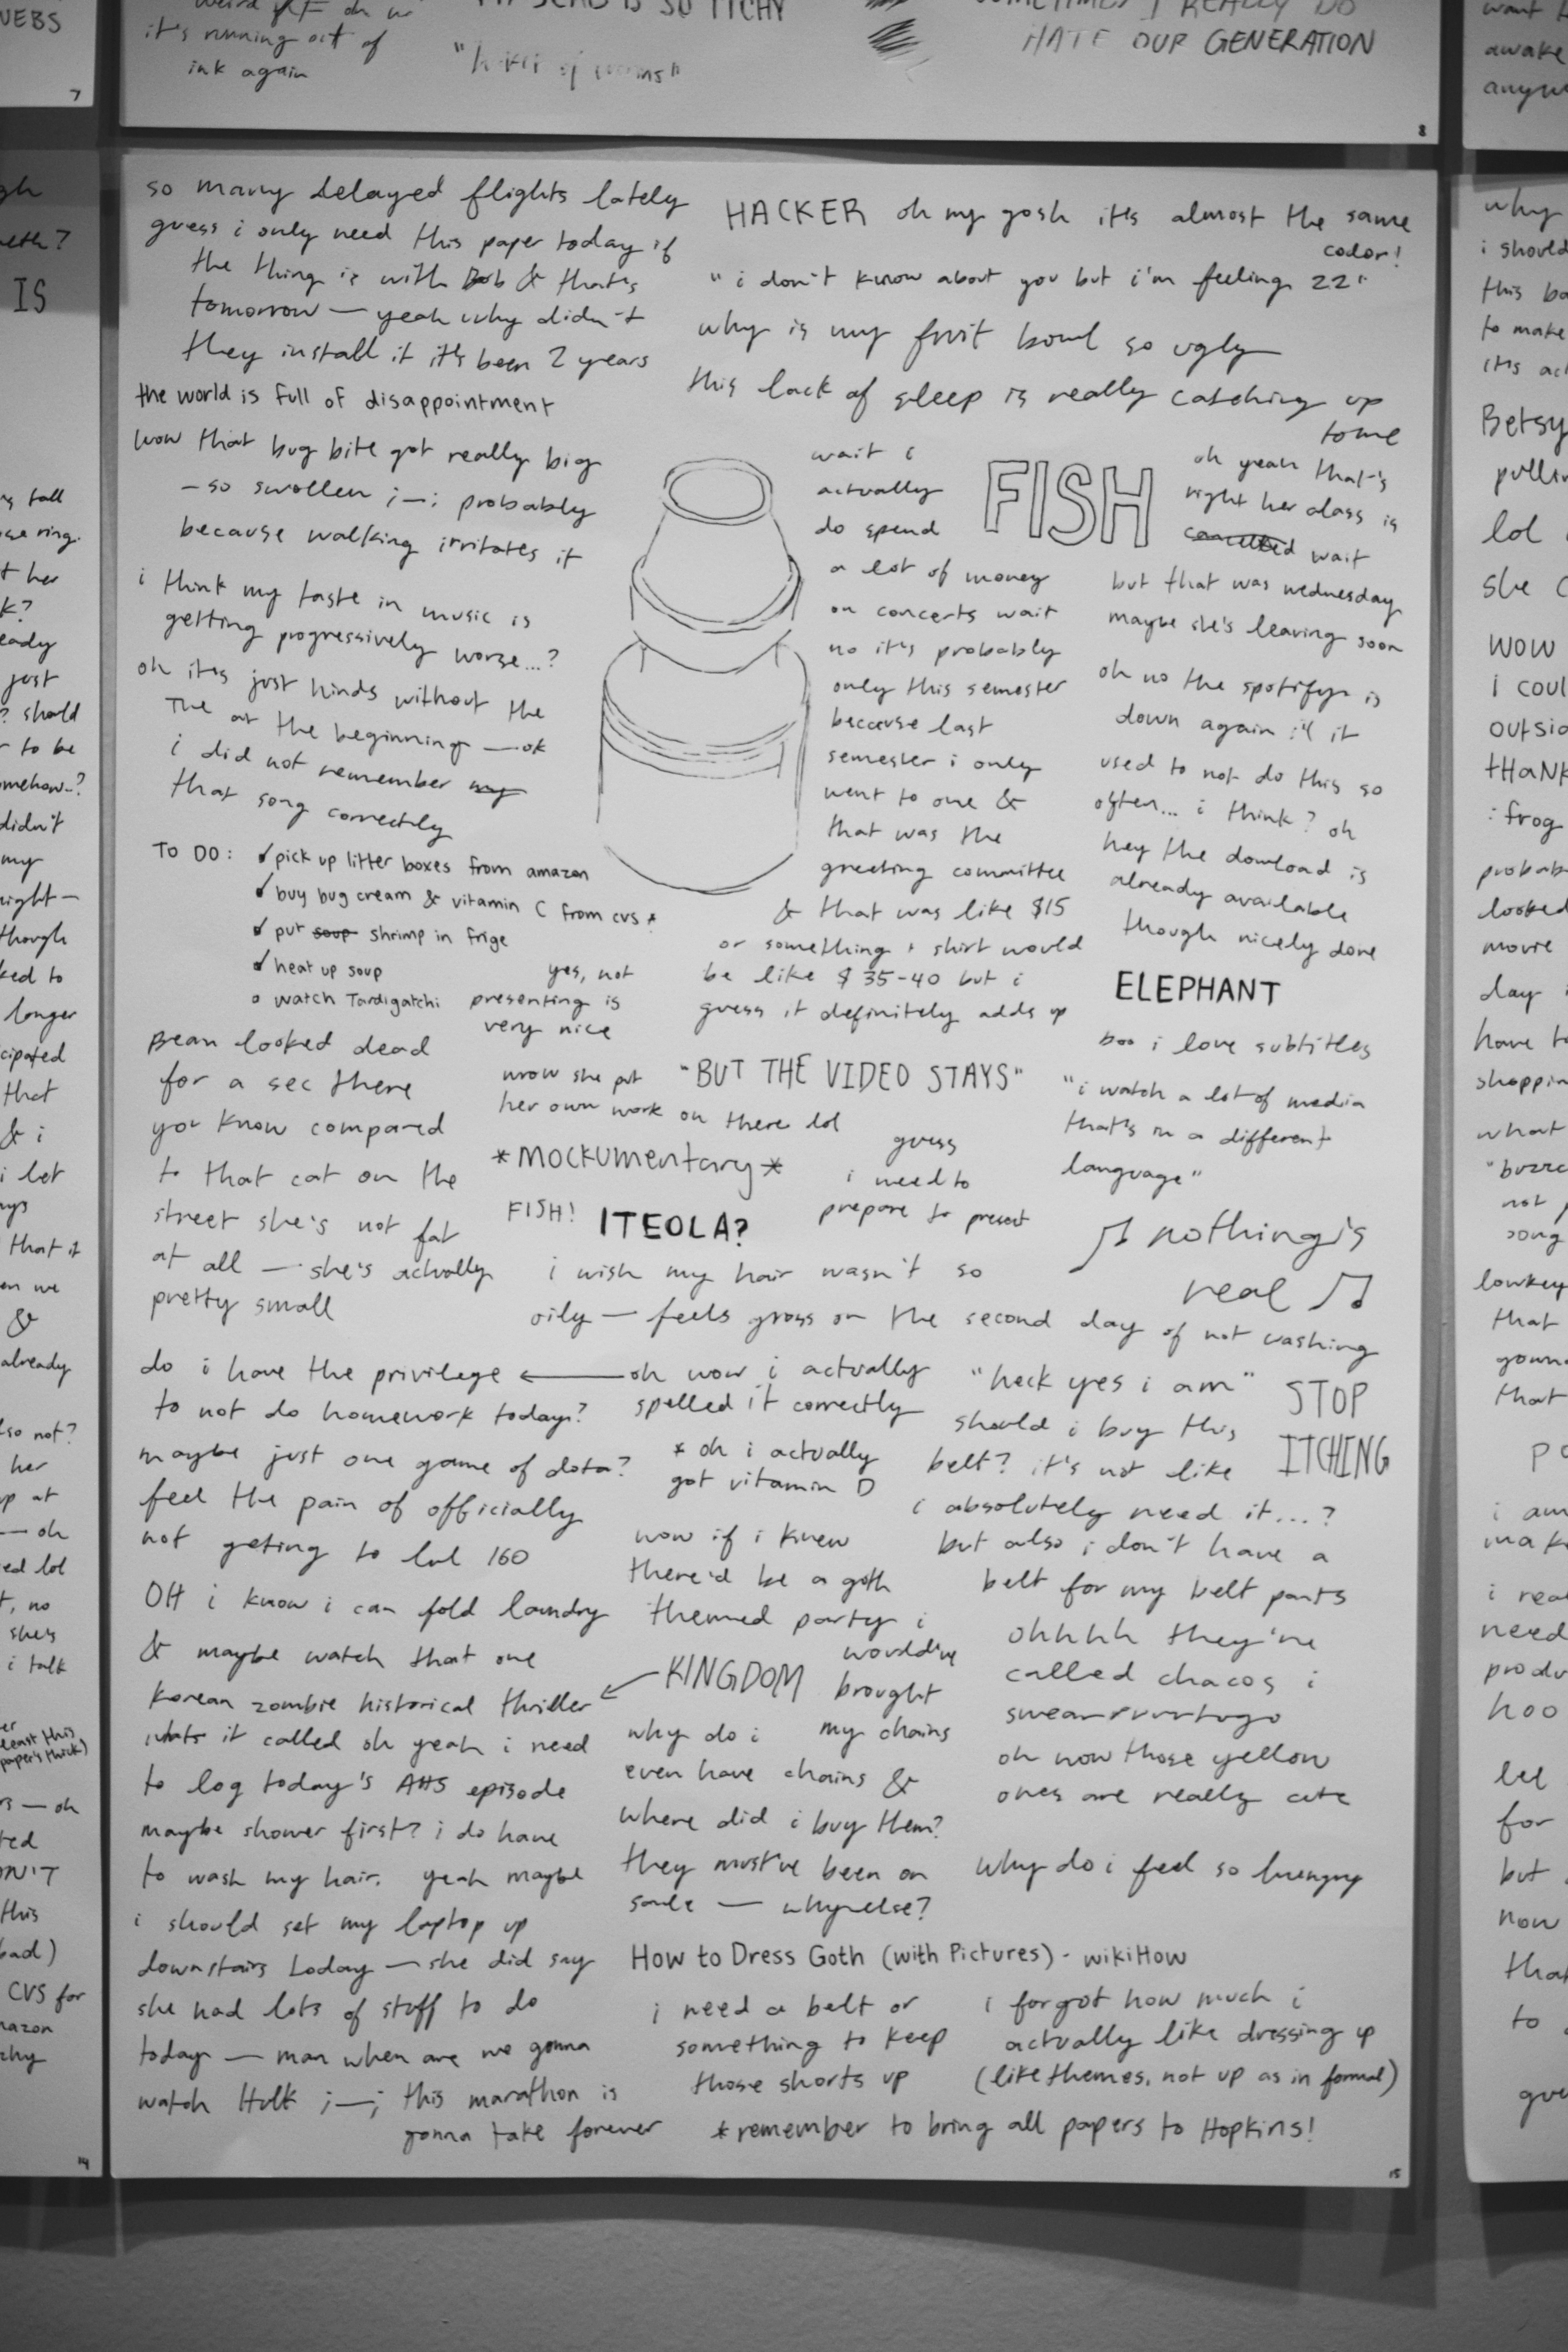 it's running out of
ink again
7
IS SO ITCHY
SOMETIMES I REALLY DO
HATE OUR GENERATION
8
so many delayed flights lately
guess i only need this paper today if
the thing is with Bob & that's
tomorrow — yeah why didn't
they install it it's been 2 years
the world is full of disappointment
wow that bug bite got really big
— so swollen ;—; probably
because walking irritates it
i think my taste in music is
getting progressively worse...?
oh it's just hinds without the
The at the beginning — ok
i did not remember my
that song correctly
TO DO: ✓ pick up litter boxes from amazon
✓ buy bug cream & vitamin C from cvs *
✓ put soup shrimp in frige
✓ heat up soup
o watch Tardigatchi
yes, not
presenting is
very nice
Bean looked dead
for a sec there
you know compared
to that cat on the
street she's not fat
at all — she's actually
pretty small
wow she put
her own work on there lol
"BUT THE VIDEO STAYS"
*MOCKUMENTARY*
FISH! ITEOLA?
guess
i need to
prepare to present
i wish my hair wasn't so
oily — feels gross on the second day of not washing
do i have the privilege ←
to not do homework today?
oh wow i actually
spelled it correctly
maybe just one game of dota?
feel the pain of officially
not geting to lvl 160
OH i know i can fold laundry
& maybe watch that one
korean zombie historical thriller
whats it called oh yeah i need
to log today's AHS episode
maybe shower first? i do have
to wash my hair. yeah maybe
i should set my laptop up
downstairs today — she did say
she had lots of stuff to do
today — man when are we gonna
watch Hulk ;—; this marathon is
gonna take forever
HACKER oh my gosh it's almost the same
color!
"i don't know about you but i'm feeling 22"
why is my fruit bowl so ugly
this lack of sleep is really catching up
to me
wait i
actually
do spend
a lot of money
on concerts wait
no it's probably
only this semester
because last
semester i only
went to one &
that was the
greeting committee
& that was like $15
or something + shirt would
be like $35-40 but i
guess it definitely adds up
FISH
oh yeah that's
right her class is
cancelled wait
but that was wednesday
maybe she's leaving soon
oh no the spotify is
down again :'( it
used to not do this so
often... i think? oh
hey the dowload is
already available
though nicely done
ELEPHANT
boo i love subtitles
"i watch a lot of media
that's in a different
language"
♫ nothing's
real ♫
"heck yes i am"
STOP
ITCHING
should i buy this
belt? it's not like
i absolutely need it...?
but also i don't have a
belt for my belt pants
* oh i actually
got vitamin D
now if i knew
there'd be a goth
themed party i
would've
brought
my chains
← KINGDOM
why do i
even have chains &
where did i buy them?
they must've been on
sale — why else?
ohhhh they're
called chacos i
swear
oh wow those yellow
ones are really cute
why do i feel so hungry
How to Dress Goth (with Pictures) - wikiHow
i need a belt or
something to keep
those shorts up
i forgot how much i
actually like dressing up
(like themes, not up as in formal)
*remember to bring all papers to Hopkins!
14
15